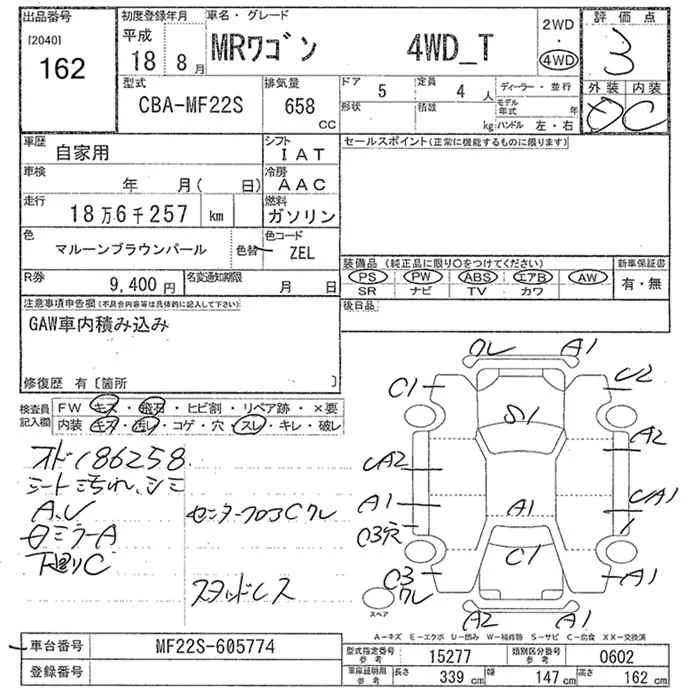 出品番号
[2040]
162
初度登録年月
平成
18 8月
車名・グレード
MRワゴン 4WD_T
2WD
・
4WD
評価点
3
外装 内装
C
型式
CBA-MF22S
排気量
658
CC
ドア 5
定員 4 人
ディーラー・並行
形状
積載 kg
モデル年式 年
ハンドル 左・右
車歴
自家用
シフト
IAT
車検
年 月( 日)
冷房
AAC
走行
18万6千257 km
燃料
ガソリン
色
マルーンブラウンパール
色替
色コード
ZEL
R券
9,400円
名変通知期限
月 日
セールスポイント(正常に機能するものに限ります)
装備品(純正品に限り○をつけてください)
PS PW ABS エアB AW
SR ナビ TV カワ
新車保証書
有・無
後日品
注意事項申告欄(不具合内容等は具体的に記入して下さい)
GAW車内積み込み
修復歴 有〔箇所 〕
検査員
記入欄
FW キズ・飛石・ヒビ割・リペア跡・×要
内装 キズ・汚レ・コゲ・穴・スレ・キレ・破レ
オド186258
シート汚れ、シミ
A、U
センターフロアCクレ
日ミラーA
下廻りC
スタッドレス
クレ A1
C1 U2
S1
A2
UA2
A1 A1 UA1
C3穴
C1
C3 A1
クレ
スペア
A2 A1
A-キズ E-エクボ U-凹み W-補修跡 S-サビ C-腐食 XX-交換済
車台番号 MF22S-605774
登録番号
型式指定番号
参考
15277
類別区分番号
参考
0602
車庫証明用
参考
長さ 339 cm
幅 147 cm
高さ 162 cm